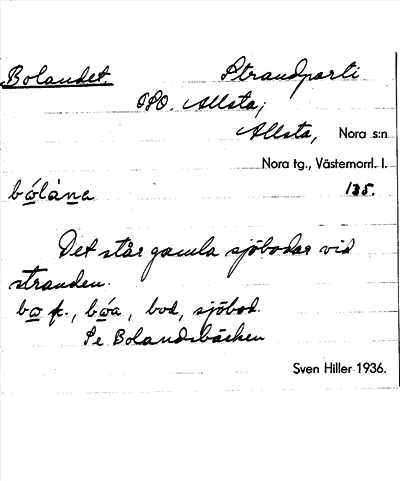 Bolandet. Strandparti
OSO. Allsta,
Allsta, Nora s:n
Nora tg., Västernorrl. l.
bo̲láṉa 135.
Det står gamla sjöbodar vid
stranden.
bo̲ f., bo̲a, bod, sjöbod.
Se Bolandsbäcken
Sven Hiller 1936.